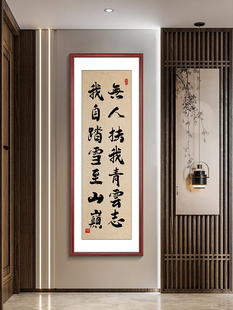 無人扶我青雲志
我自踏雪至山巔